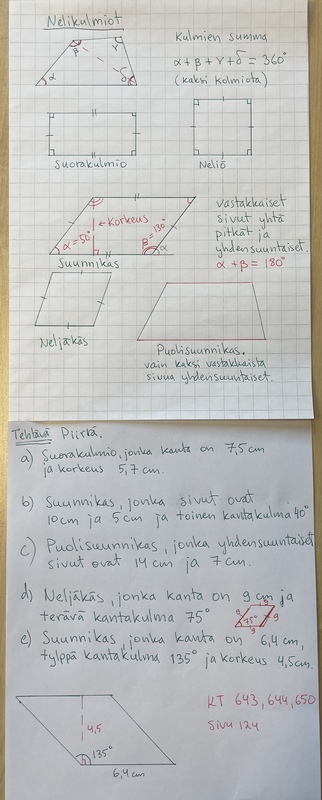 Nelikulmiot
Kulmien summa
α + β + γ + δ = 360°
(kaksi kolmiota)
α
β
γ
δ
Suorakulmio
Neliö
vastakkaiset
sivut yhtä
pitkät ja
yhdensuuntaiset.
α + β = 180°
← Korkeus
α = 50°
β = 130°
α
Suunnikas
Neljäkäs
Puolisuunnikas.
vain kaksi vastakkaista
sivua yhdensuuntaiset.
Tehtävä Piirrä.
a) Suorakulmio, jonka kanta on 7,5 cm
ja korkeus 5,7 cm.
b) Suunnikas, jonka sivut ovat
10 cm ja 5 cm ja toinen kantakulma 40°
c) Puolisuunnikas, jonka yhdensuuntaiset
sivut ovat 14 cm ja 7 cm.
d) Neljäkäs, jonka kanta on 9 cm ja
terävä kantakulma 75°
9
75°
9
e) Suunnikas, jonka kanta on 6,4 cm,
tylppä kantakulma 135° ja korkeus 4,5 cm.
4,5
135°
6,4 cm
KT 643, 644, 650
Sivu 124